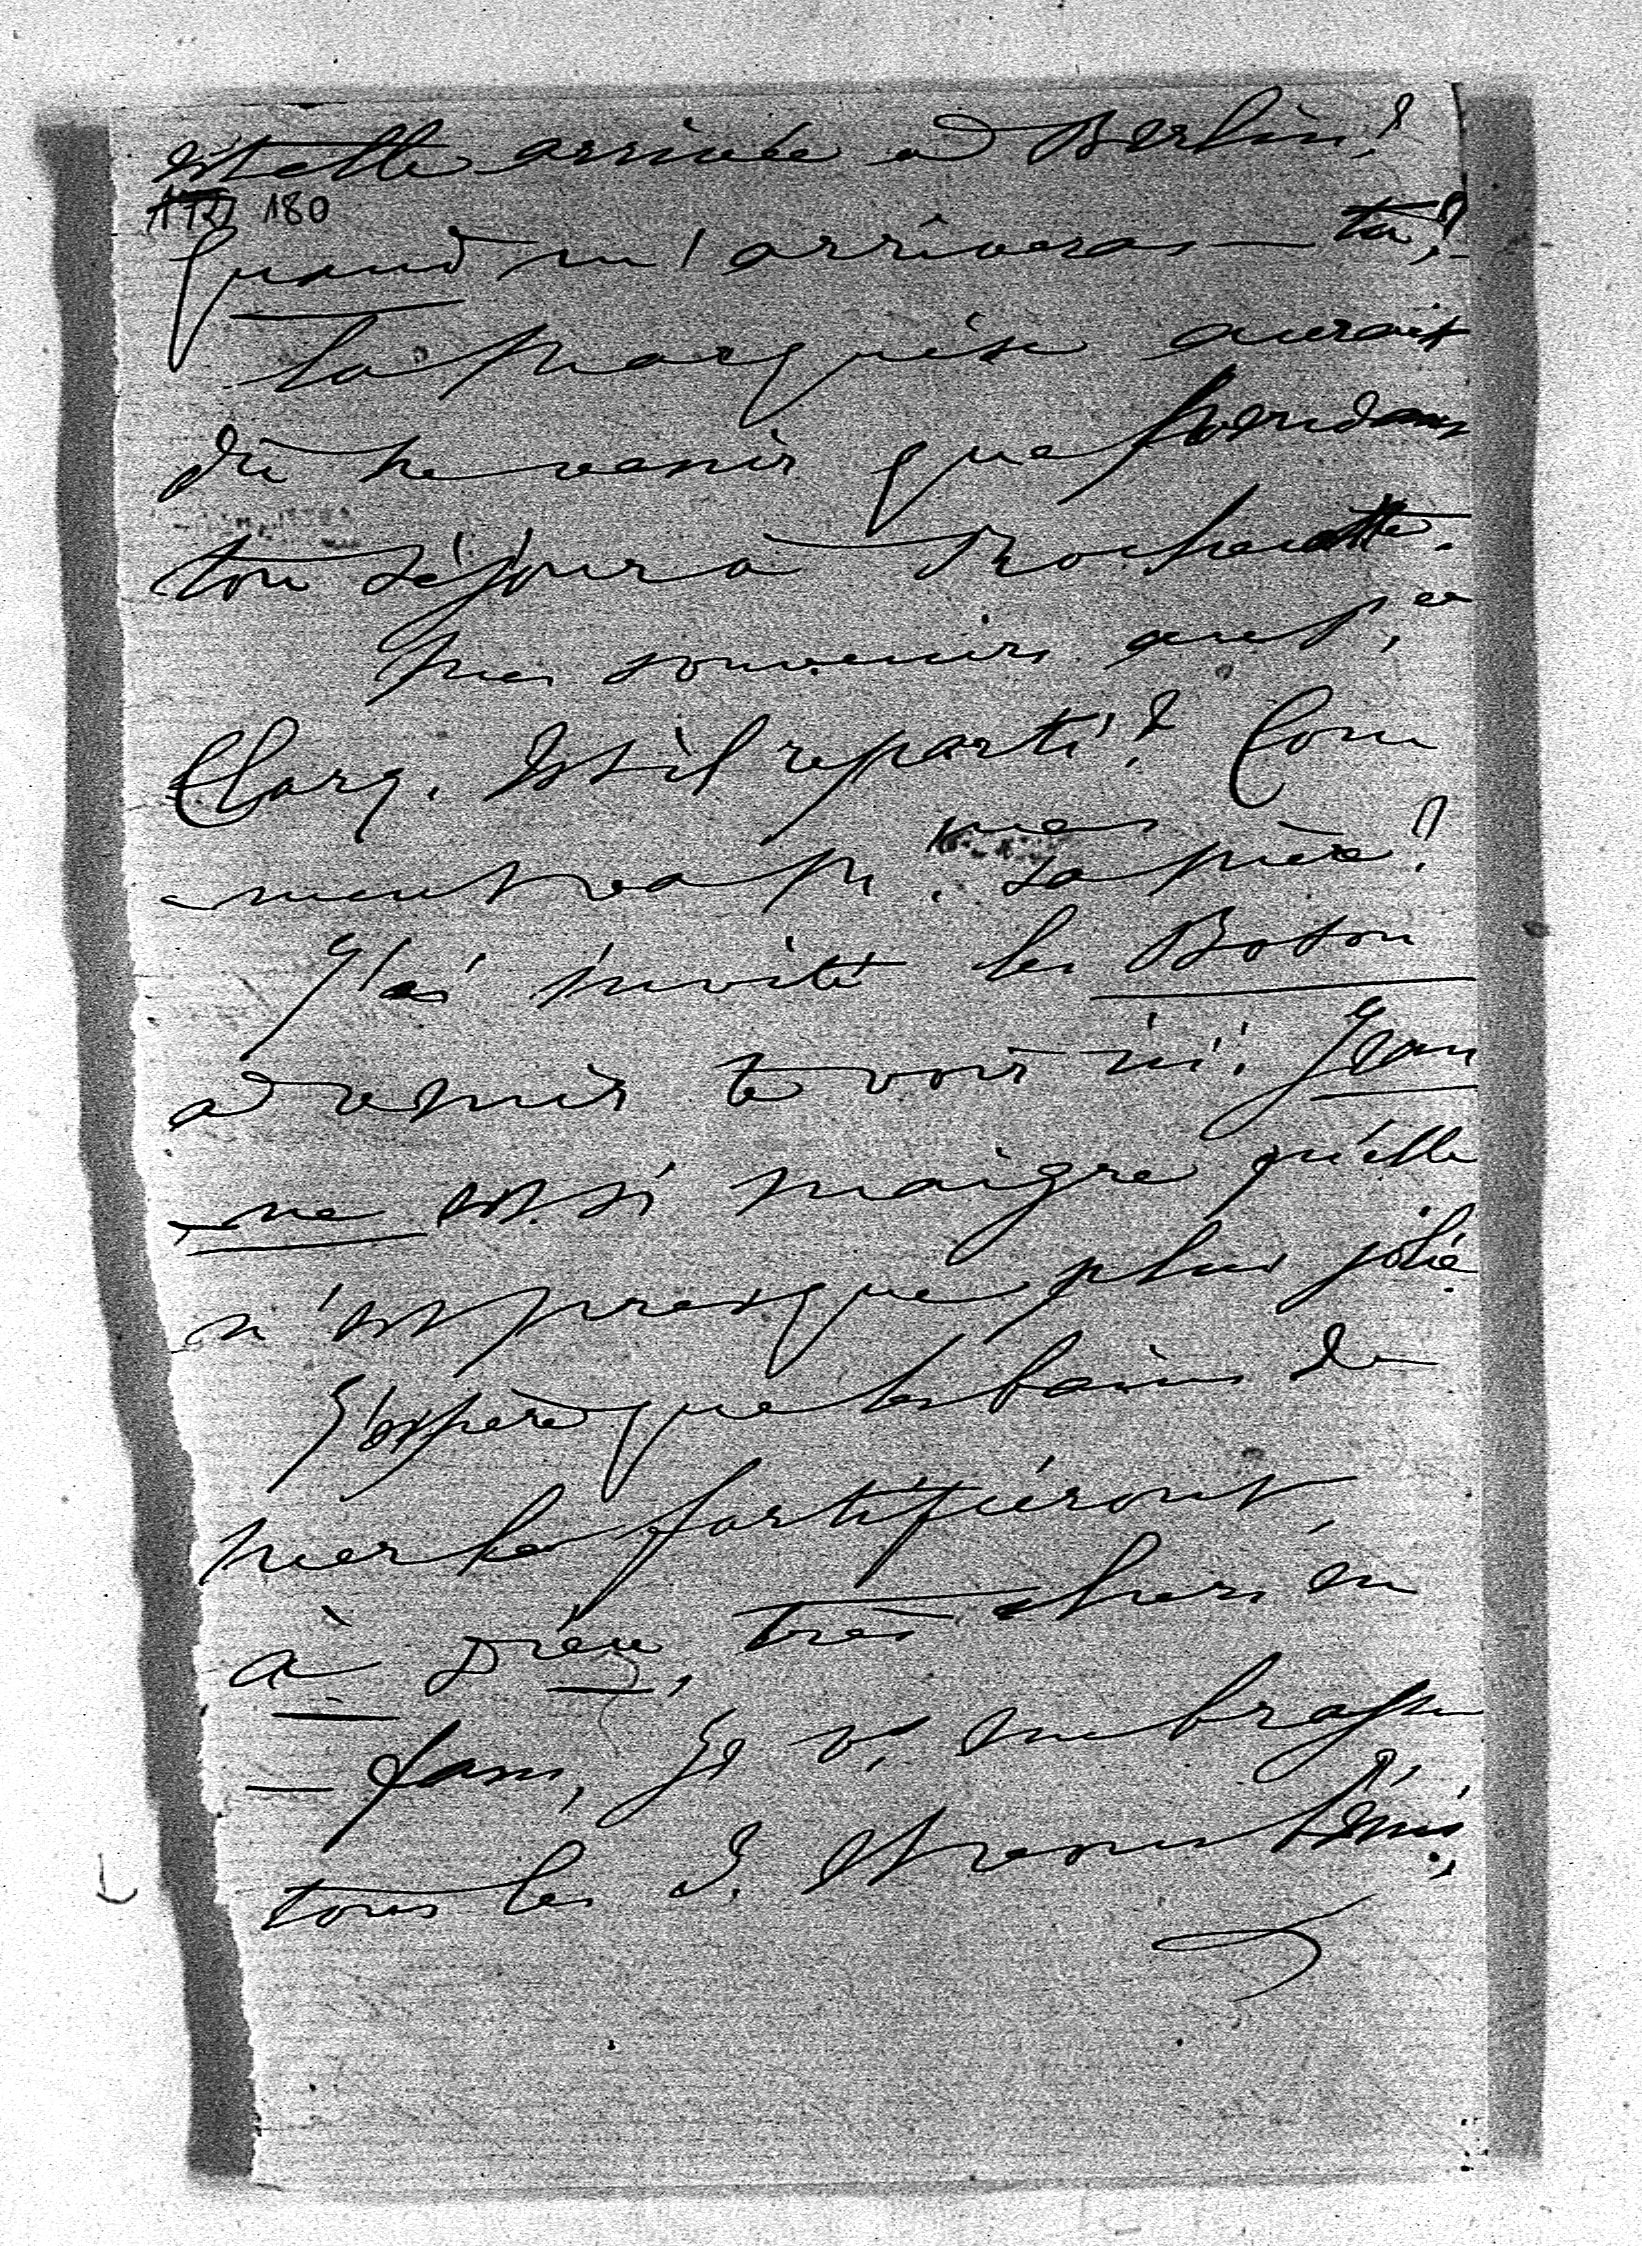 Est elle arrivée à Berlin?
180
Quand m'arriveras-tu?
La Marquise aurait
dû ne venir que pendant
ton séjour à Rochecotte.
Mes souvenirs au
Clary. Est il reparti? Com
ment va M. sa mère?
J'ai invité les Boson
à venir te voir ici. Jean
ne est si maigre qu'elle
n'est presque plus jolie
J'espère que les bains de
mer la fortifieront
à Dieu, très chers en
fans, Je vs embrasse
tous les 3. et vous bénis,